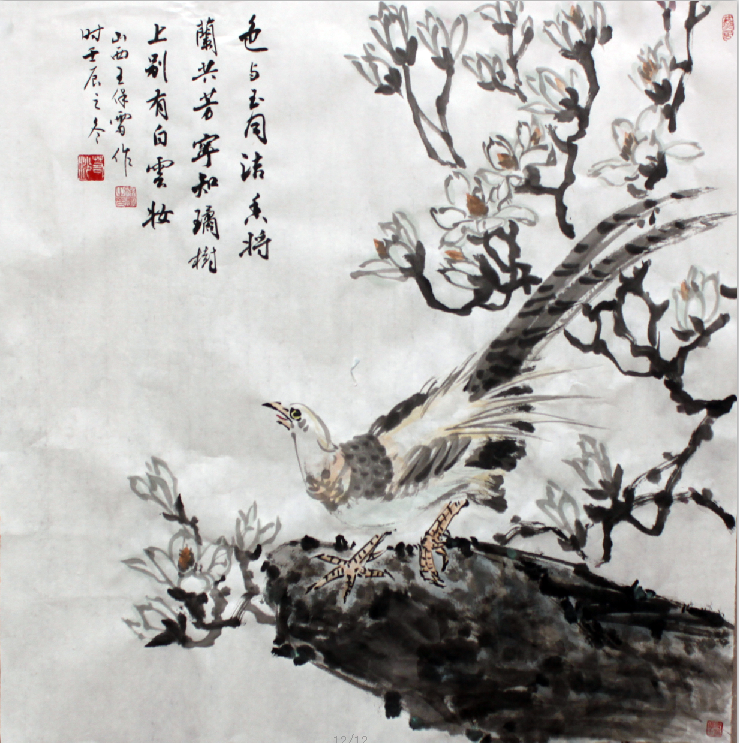 色与玉同洁香将
蘭共芳寧知璚樹
上别有白雲妆
山西王保雷作
时壬辰之冬
12/12